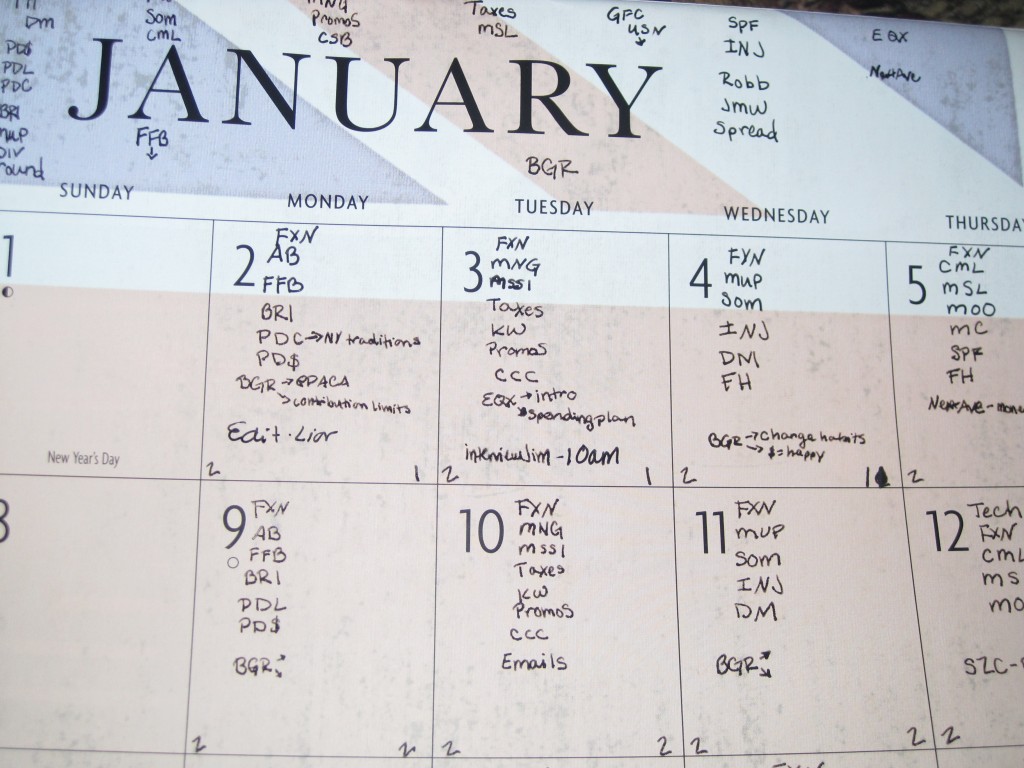 Dm
PD$
PDL
PDC
BRI
mup
DIV
round
Som
CML
Promos
CSB
Taxes
MSL
GFC
USN
SPF
INJ
Robb
JMW
Spread
EQX
NextAve
JANUARY
FFB
BGR
SUNDAY
MONDAY
TUESDAY
WEDNESDAY
THURSDAY
1
New Year's Day
2
FXN
AB
FFB
BRI
PDC → NY traditions
PD$
BGR → @PACA
→ contribution limits
Edit. Lior
2 1
3
FXN
MNG
MSSI
Taxes
KW
Promos
CCC
EQX → intro
spending plan
interview Jim - 10am
2 1
4
FXN
mup
Som
INJ
DM
FH
BGR → Change habits
→ $ = happy
2 1
5
FXN
CML
MSL
MOO
MC
SPF
FH
NextAve -
2
8
9
FXN
AB
FFB
BRI
PDL
PD$
BGR
2 2
10
FXN
MNG
MSSI
Taxes
KW
Promos
CCC
Emails
2 2
11
FXN
mup
Som
INJ
DM
BGR
2 2
12
Tech
FXN
CML
MS
MO
SZC-
2